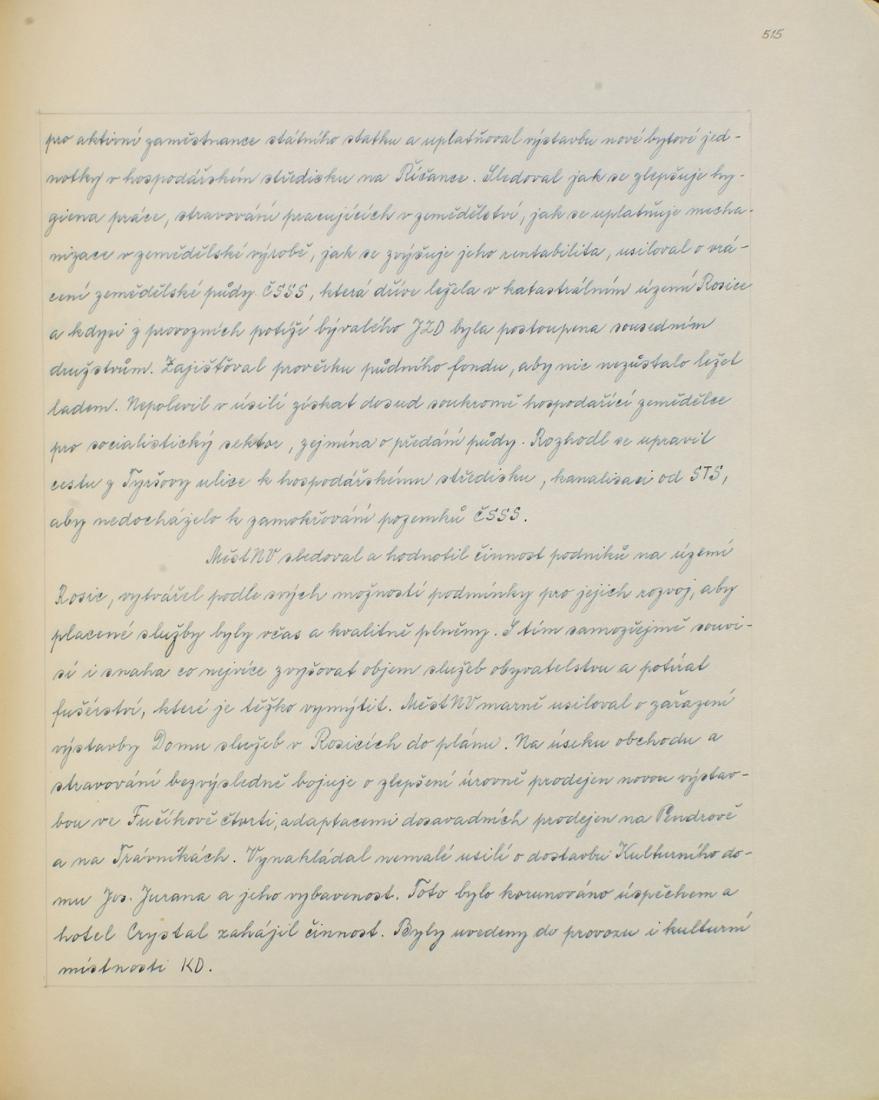 515
pro aktivní zaměstnance státního statku a uplatňoval výstavbu nové bytové jed-
notky v hospodářském středisku na Říčance. Sledoval jak se zlepšuje hy-
giena práce, stravování pracujících v zemědělství, jak se uplatňuje mecha-
nizace v zemědělské výrobě, jak se zvýšuje jeho rentabilita, usiloval o vrá-
cení zemědělské půdy ČSSS, která dříve ležela v katastrálním území Rosice
a kdysi z provozních potíží bývalého JZD byla postoupena sousedním
družstvům. Zajišťoval prověrku půdního fondu, aby nic nezůstalo ležet
ladem. Nepolevil v úsilí získat dosud soukromě hospodařící zemědělce
pro socialistický sektor, zejména o předání půdy. Rozhodl se upravit
cestu z Tyršovy ulice k hospodářskému středisku, kanalisaci od STS,
aby nedocházelo k zamokřování pozemků ČSSS.
MěstNV sledoval a hodnotil činnost podniků na území
Rosic, vytvářel podle svých možností podmínky pro jejich rozvoj, aby
placené služby byly včas a kvalitně plněny. S tím samozřejmě souvi-
sí i snaha co nejvíce zvyšovat objem služeb obyvatelstvu a potírat
fušérství, které je těžko vymýtit. MěstNV marně usiloval o zařazení
výstavby Domu služeb v Rosicích do plánu. Na úseku obchodu a
stravování bezvýsledně bojuje o zlepšení úrovně prodejen novou výstav-
bou ve Fučíkově čtvrti, adaptacemi dosavadních prodejen na Pendrově
a na Trávníkách. Vynakládal nemalé usilí o dostavbu Kulturního do-
mu Jos. Jurana a jeho vybavenost. Toto bylo korunováno úspěchem a
hotel Crystal zahájil činnost. Byly uvedeny do provozu i kulturní
místnosti KD.